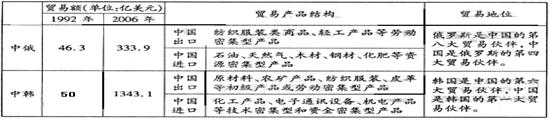 贸易额(单位:亿美元) 贸易产品结构 贸易地位
1992 年 2006 年
中俄 46.3 333.9
中国出口 纺织服装类商品、轻工产品等劳动密集型产品
中国进口 石油、天然气、木材、钢材、化肥等资源密集型产品
俄罗斯是中国的第八大贸易伙伴,中国是俄罗斯的第四大贸易伙伴。
中韩 50 1343.1
中国出口 原材料、农矿产品、纺织服装、皮革等初级产品或劳动密集型产品
中国进口 化工产品、电子通讯设备、机电产品等技术密集型和资金密集型产品
韩国是中国的第六大贸易伙伴,中国是韩国的第一大贸易伙伴。